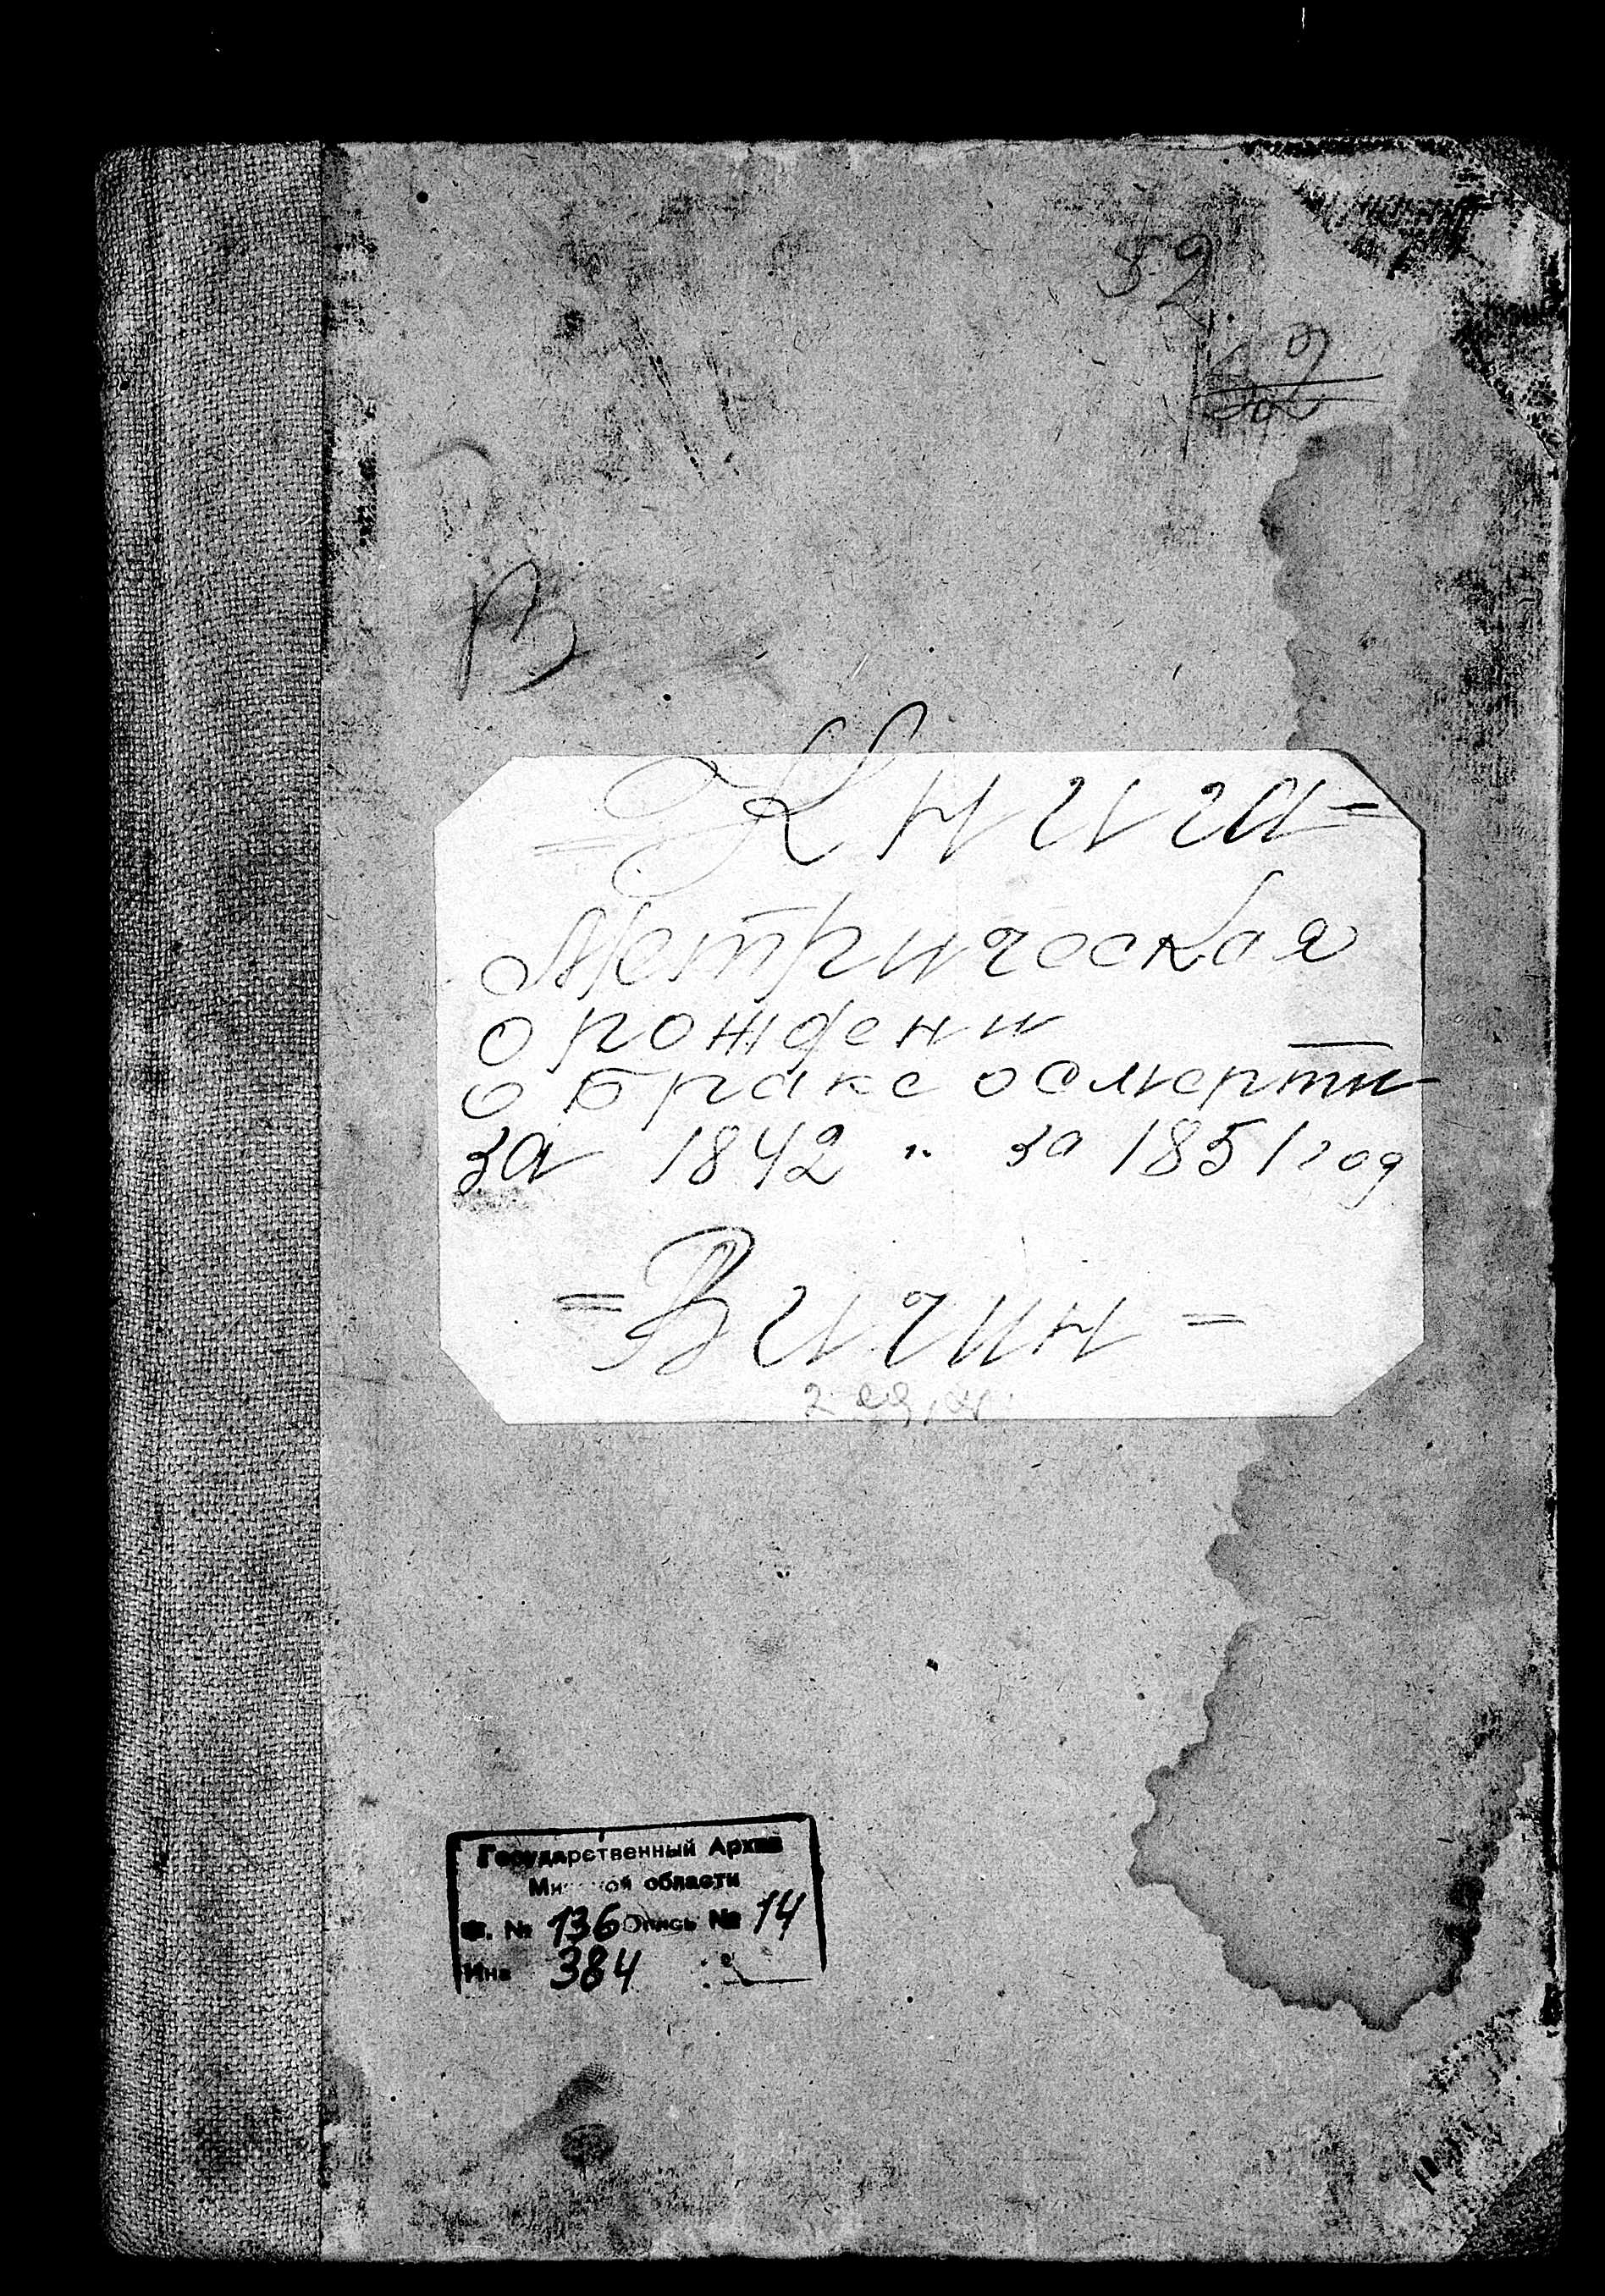 52
В
= Книга =
Метрическая
о рождени
о браке о смерти
за 1842 " за 1851 год
= Вичин =
Государственный Архив
Минской области
Ф. № 136 Опись № 14
Инв 384